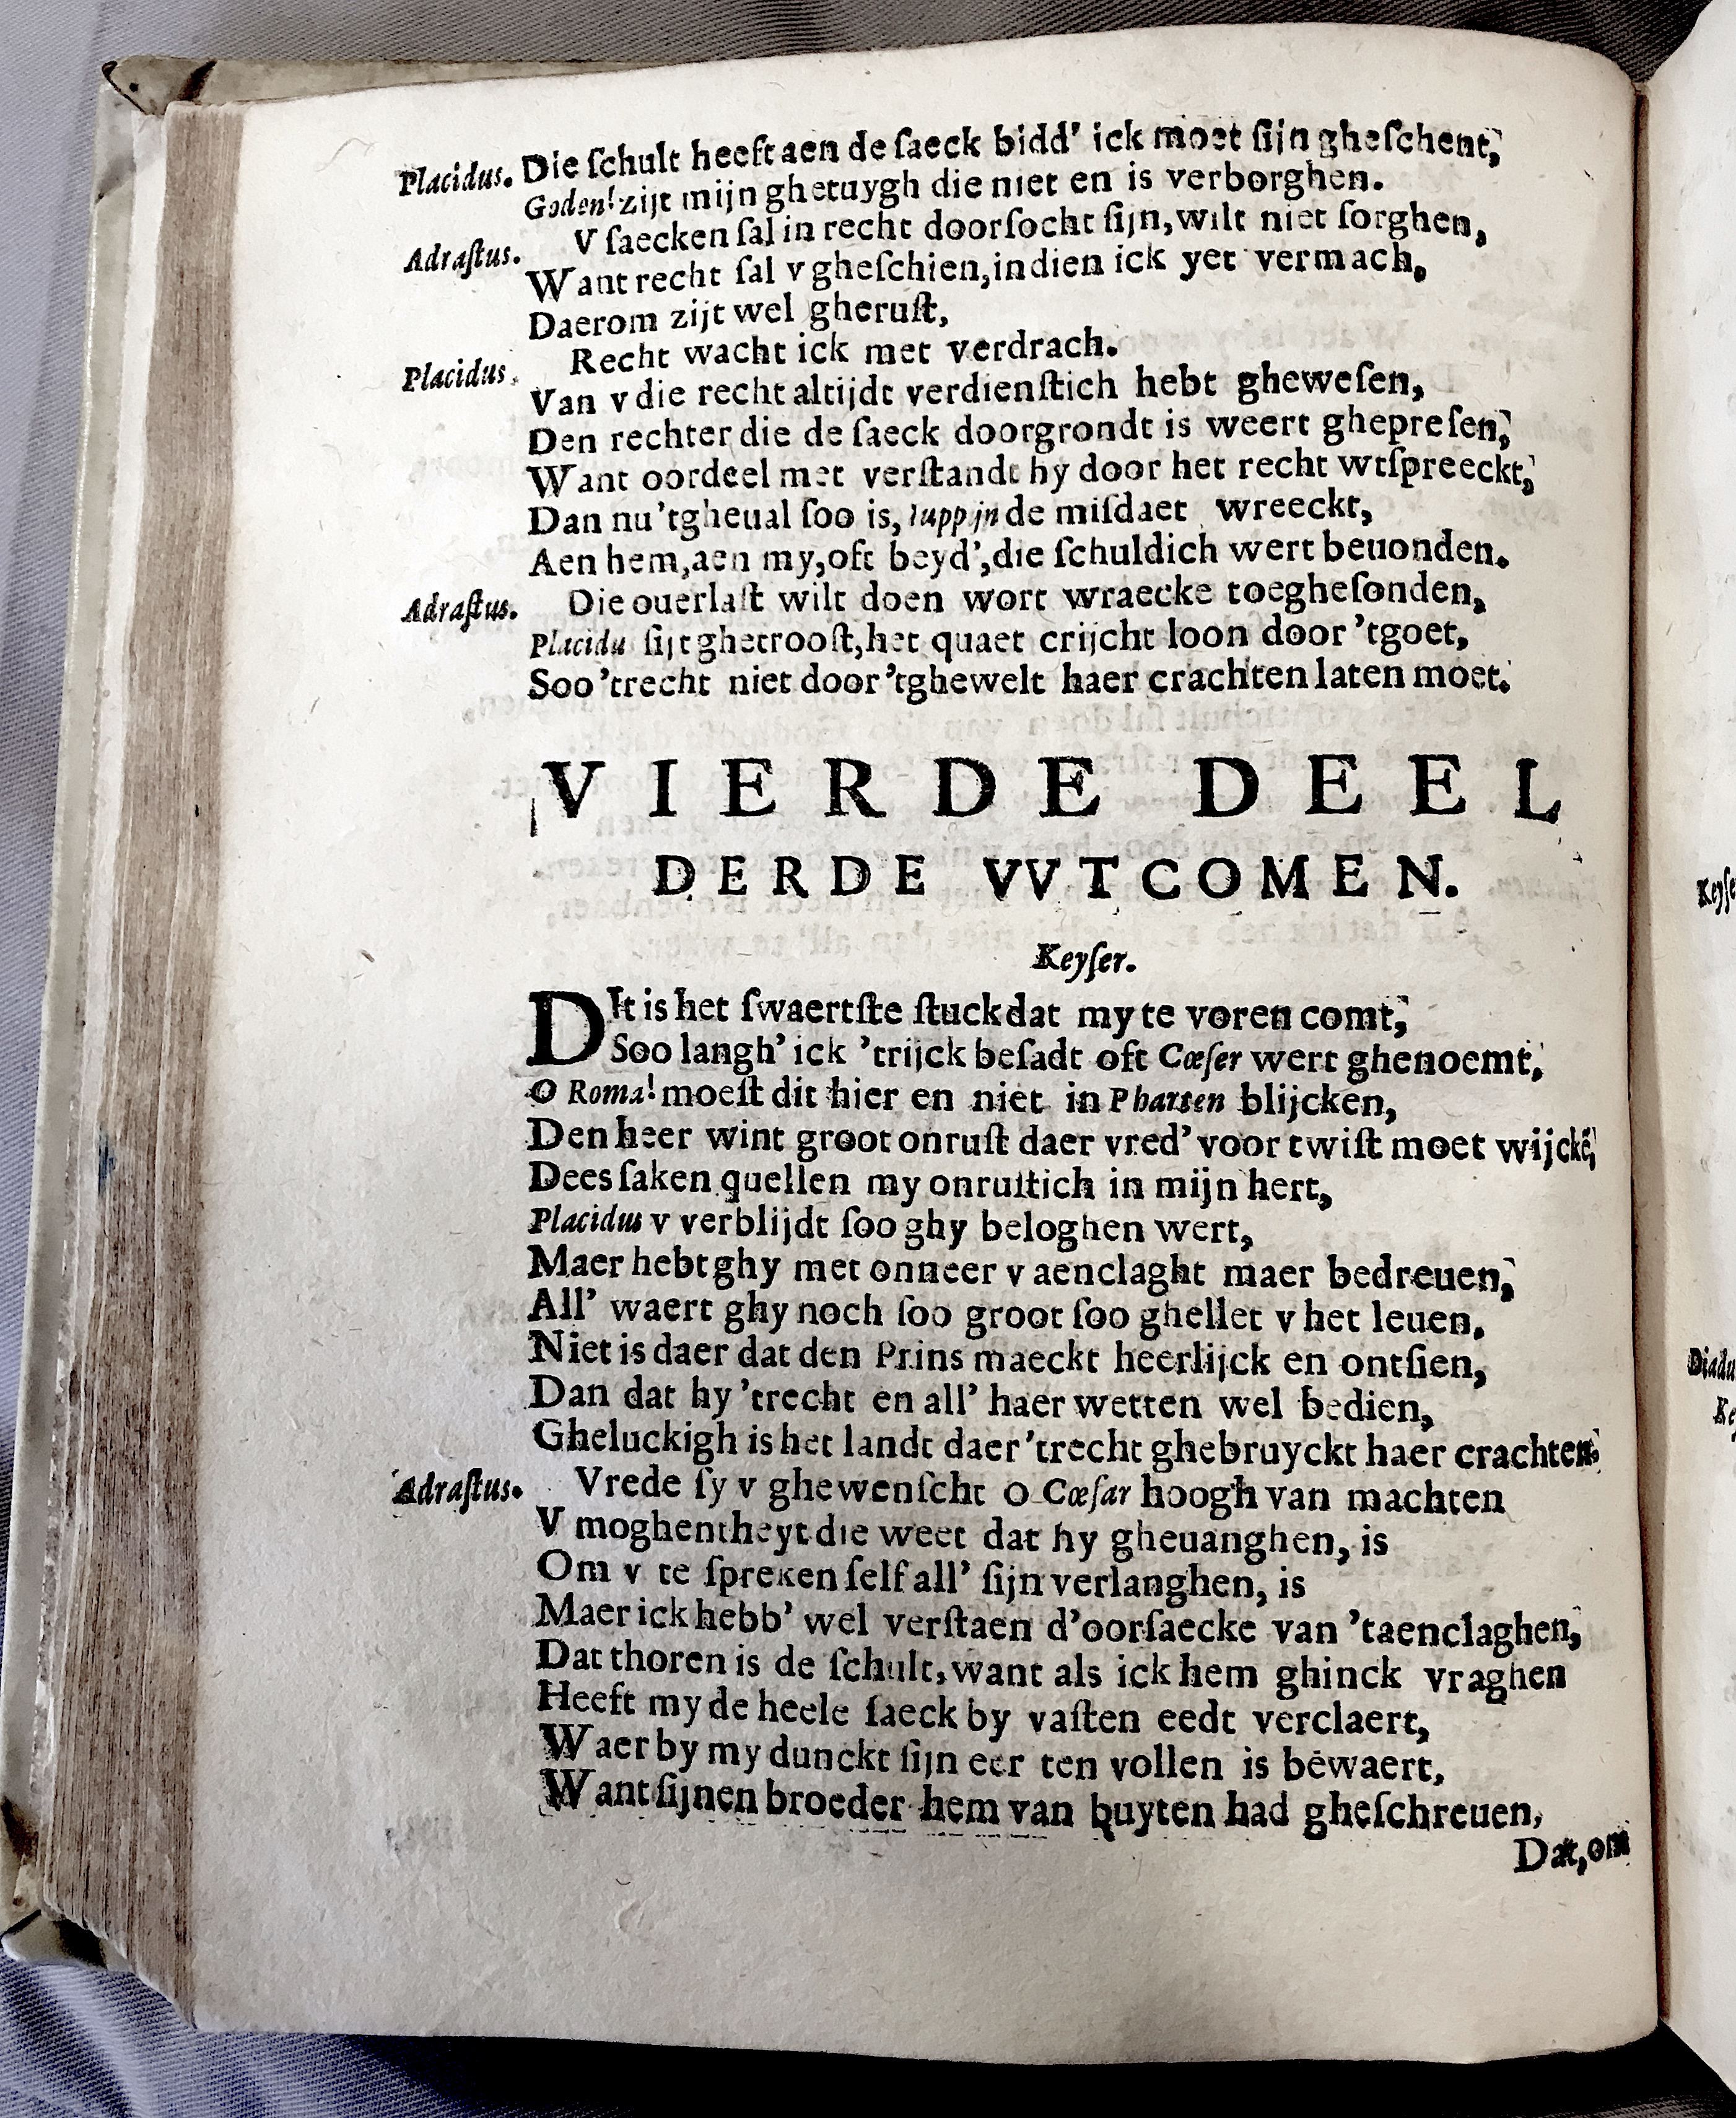 Placidus. Die ſchult heeft aen de ſaeck bidd' ick moet ſijn gheſchent,
Goden! zijt mijn ghetuygh die niet en is verborghen.
Adraſtus. V ſaecken ſal in recht doorſocht ſijn, wilt niet ſorghen,
Want recht ſal v gheſchien, indien ick yet vermach,
Daerom zijt wel gheruſt,
Placidus. Recht wacht ick met verdrach.
Van v die recht altijdt verdienſtich hebt gheweſen,
Den rechter die de ſaeck doorgrondt is weert ghepreſen,
Want oordeel met verſtandt hy door het recht wtſpreeckt,
Dan nu 'tgheual ſoo is, Iuppijn de miſdaet wreeckt,
Aen hem, aen my, oft beyd', die ſchuldich wert beuonden.
Adraſtus. Die ouerlaſt wilt doen wort wraecke toegheſonden,
Placidu ſijt ghetrooſt, het quaet crijcht loon door 'tgoet,
Soo 'trecht niet door 'tghewelt haer crachten laten moet.
VIERDE DEEL
DERDE VVTCOMEN.
Keyſer.
DIt is het ſwaertſte ſtuck dat my te voren comt,
Soo langh' ick 'trijck beſadt oft Cæſer wert ghenoemt,
O Roma! moeſt dit hier en niet in Pharten blijcken,
Den heer wint groot onruſt daer vred' voor twiſt moet wijckē,
Dees ſaken quellen my onruſtich in mijn hert,
Placidus v verblijdt ſoo ghy beloghen wert,
Maer hebt ghy met onneer v aenclaght maer bedreuen,
All' waert ghy noch ſoo groot ſoo ghellet v het leuen.
Niet is daer dat den Prins maeckt heerlijck en ontſien,
Dan dat hy 'trecht en all' haer wetten wel bedien,
Gheluckigh is het landt daer 'trecht ghebruyckt haer crachten.
Adraſtus. Vrede ſy v ghewenſcht O Cæſar hoogh van machten
V moghentheyt die weet dat hy gheuanghen, is
Om v te ſpreken ſelf all' ſijn verlanghen, is
Maer ick hebb' wel verſtaen d'oorſaecke van 'taenclaghen,
Dat thoren is de ſchult, want als ick hem ghinck vraghen
Heeft my de heele ſaeck by vaſten eedt verclaert,
Waer by my dunckt ſijn eer ten vollen is bewaert,
Want ſijnen broeder hem van buyten had gheſchreuen,
Dat, om